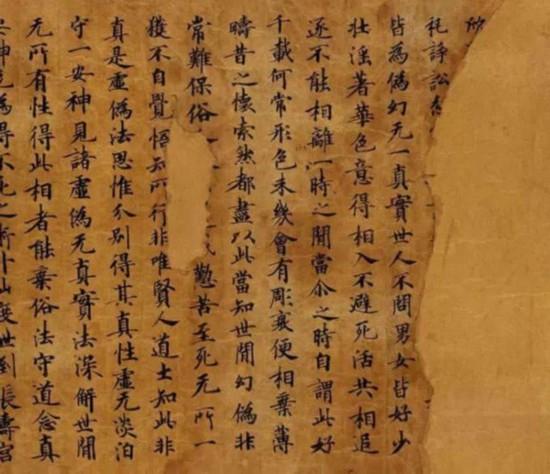 欣
諍訟
皆為偽幻无一真實世人不問男女皆好少
壮淫著華色意得相入不避死活共相追
逐不能相離一時之間當尒之時自謂此好
千載何常形色未幾會有彫衰便相棄薄
疇昔之懷索然都盡以此當知世間幻偽非
常難保俗懃苦至死无所一
獲不自覺悟知所行非唯賢人道士知此非
真是虛偽法思惟分別得其真性虛无淡泊
守一安神見諸虛偽无真實法深解世間
无所有性得此相者能棄俗法守道念真
安神為得不死之術升仙度世到長壽宮